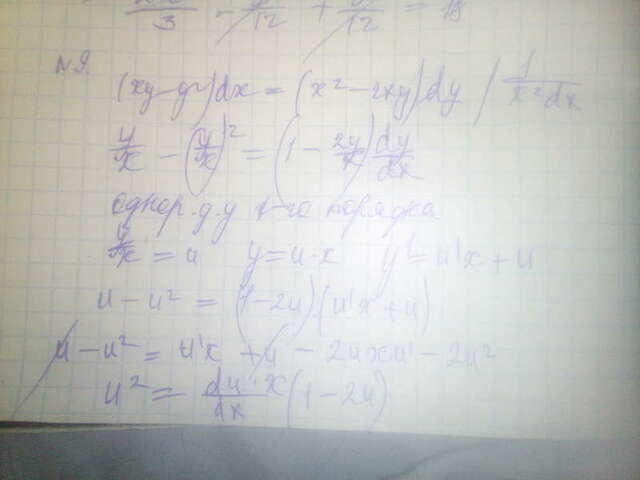 /3 - /12 + /12 = 18
№9.
(xy-y²)dx = (x²-2xy)dy / 1/x²dx
y/x - (y/x)² = (1 - 2y/x) dy/dx
однор. д. у 1-го порядка
y/x = u y = u·x y' = u'x + u
u - u² = (1-2u)(u'x+u)
u - u² = u'x + u - 2uxu' - 2u²
u² = du·x/dx (1-2u)